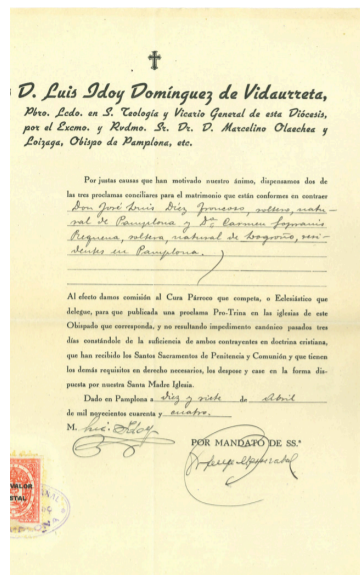 D. Luis Idoy Domínguez de Vidaurreta,
Pbro. Lcdo. en S. Teología y Vicario General de esta Diócesis,
por el Excmo. y Rvdmo. Sr. Dr. D. Marcelino Olaechea y
Loizaga, Obispo de Pamplona, etc.
Por justas causas que han motivado nuestro ánimo, dispensamos dos de
las tres proclamas conciliares para el matrimonio que están conformes en contraer
Don José Luis Díez, soltero, natu-
ral de Pamplona y Dª Carmen
Requena, soltera, natural de Logroño, resi-
dentes en Pamplona.
Al efecto damos comisión al Cura Párroco que competa, o Eclesiástico que
delegue, para que publicada una proclama Pro-Trina en las iglesias de este
Obispado que corresponda, y no resultando impedimento canónico pasados tres
días constándole de la suficiencia de ambos contrayentes en doctrina cristiana,
que han recibido los Santos Sacramentos de Penitencia y Comunión y que tienen
los demás requisitos en derecho necesarios, los despose y case en la forma dis-
puesta por nuestra Santa Madre Iglesia.
Dado en Pamplona a diez y siete de Abril
de mil novecientos cuarenta y cuatro.
M. Luis Idoy
POR MANDATO DE SS.ª
VALOR